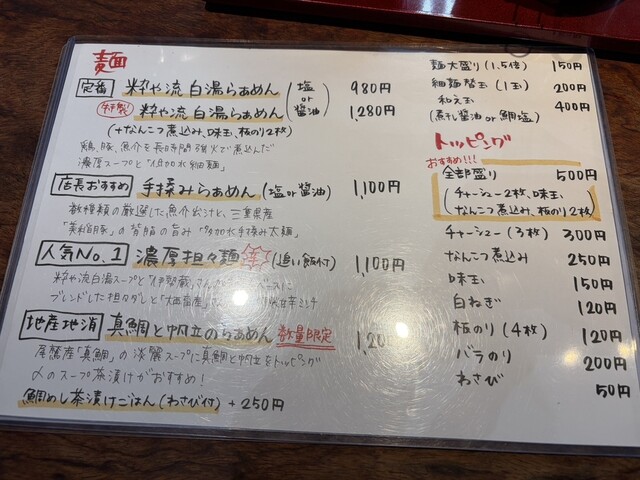 麺
定番 粋や流 白湯らぁめん (塩 or 醤油) 980円
特製! 粋や流 白湯らぁめん 1,280円
(+なんこつ煮込み、味玉、板のり2枚)
鶏、豚、魚介を長時間強火で煮込んだ
濃厚スープと"低加水細麺"
店長おすすめ 手揉みらぁめん (塩or醤油) 1,100円
数種類の厳選した魚介出汁と、三重県産
の背脂の旨み "多加水手揉み太麺"
人気No.1 濃厚担々麺 辛 (追い飯付) 1,100円
粋や流白湯スープと
ブレンドした担々ダレと
地産地消 真鯛と帆立のらぁめん 数量限定
尾鷲産「真鯛」の淡麗スープに真鯛と帆立をトッピング
〆のスープ茶漬けがおすすめ!
鯛めし茶漬けごはん (わさび付) + 250円
麺大盛り (1.5倍) 150円
細麺替玉 (1玉) 200円
和え玉 400円
(煮干し醤油 or 鯛塩)
トッピング
おすすめ!!!
全部盛り 500円
(チャーシュー2枚、味玉
なんこつ煮込み、板のり2枚)
チャーシュー (3枚) 300円
なんこつ煮込み 250円
味玉 150円
白ねぎ 120円
板のり (4枚) 120円
バラのり 200円
わさび 50円